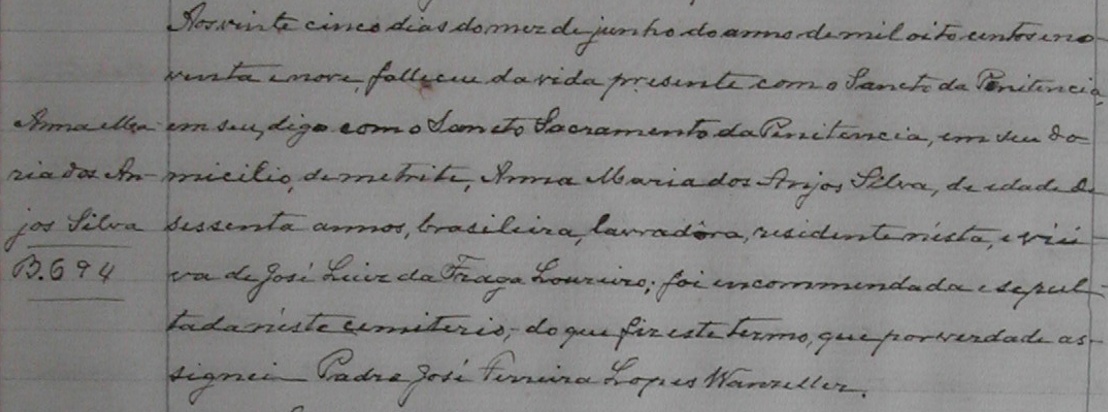 Aos vinte cinco dias do mez de junho do anno de mil oito centos e no-
venta e nove, falleceu da vida presente com o Sancto da Penitencia,
Anna Ma-
em seu, digo com o Sancto Sacramento da Penitencia, em seu do-
ria dos An-
micilio, de metrite, Anna Maria dos Anjos Silva, de edade de
jos Silva
sessenta annos, brasileira, lavradora, residente nésta, e viu-
B. 694
va de José Luiz da Fraga Loureiro; foi encommendada e sepul-
tada néste cemiterio, do que fiz este termo, que por verdade as-
signei Padre José Ferreira Lopes Wanzeller.